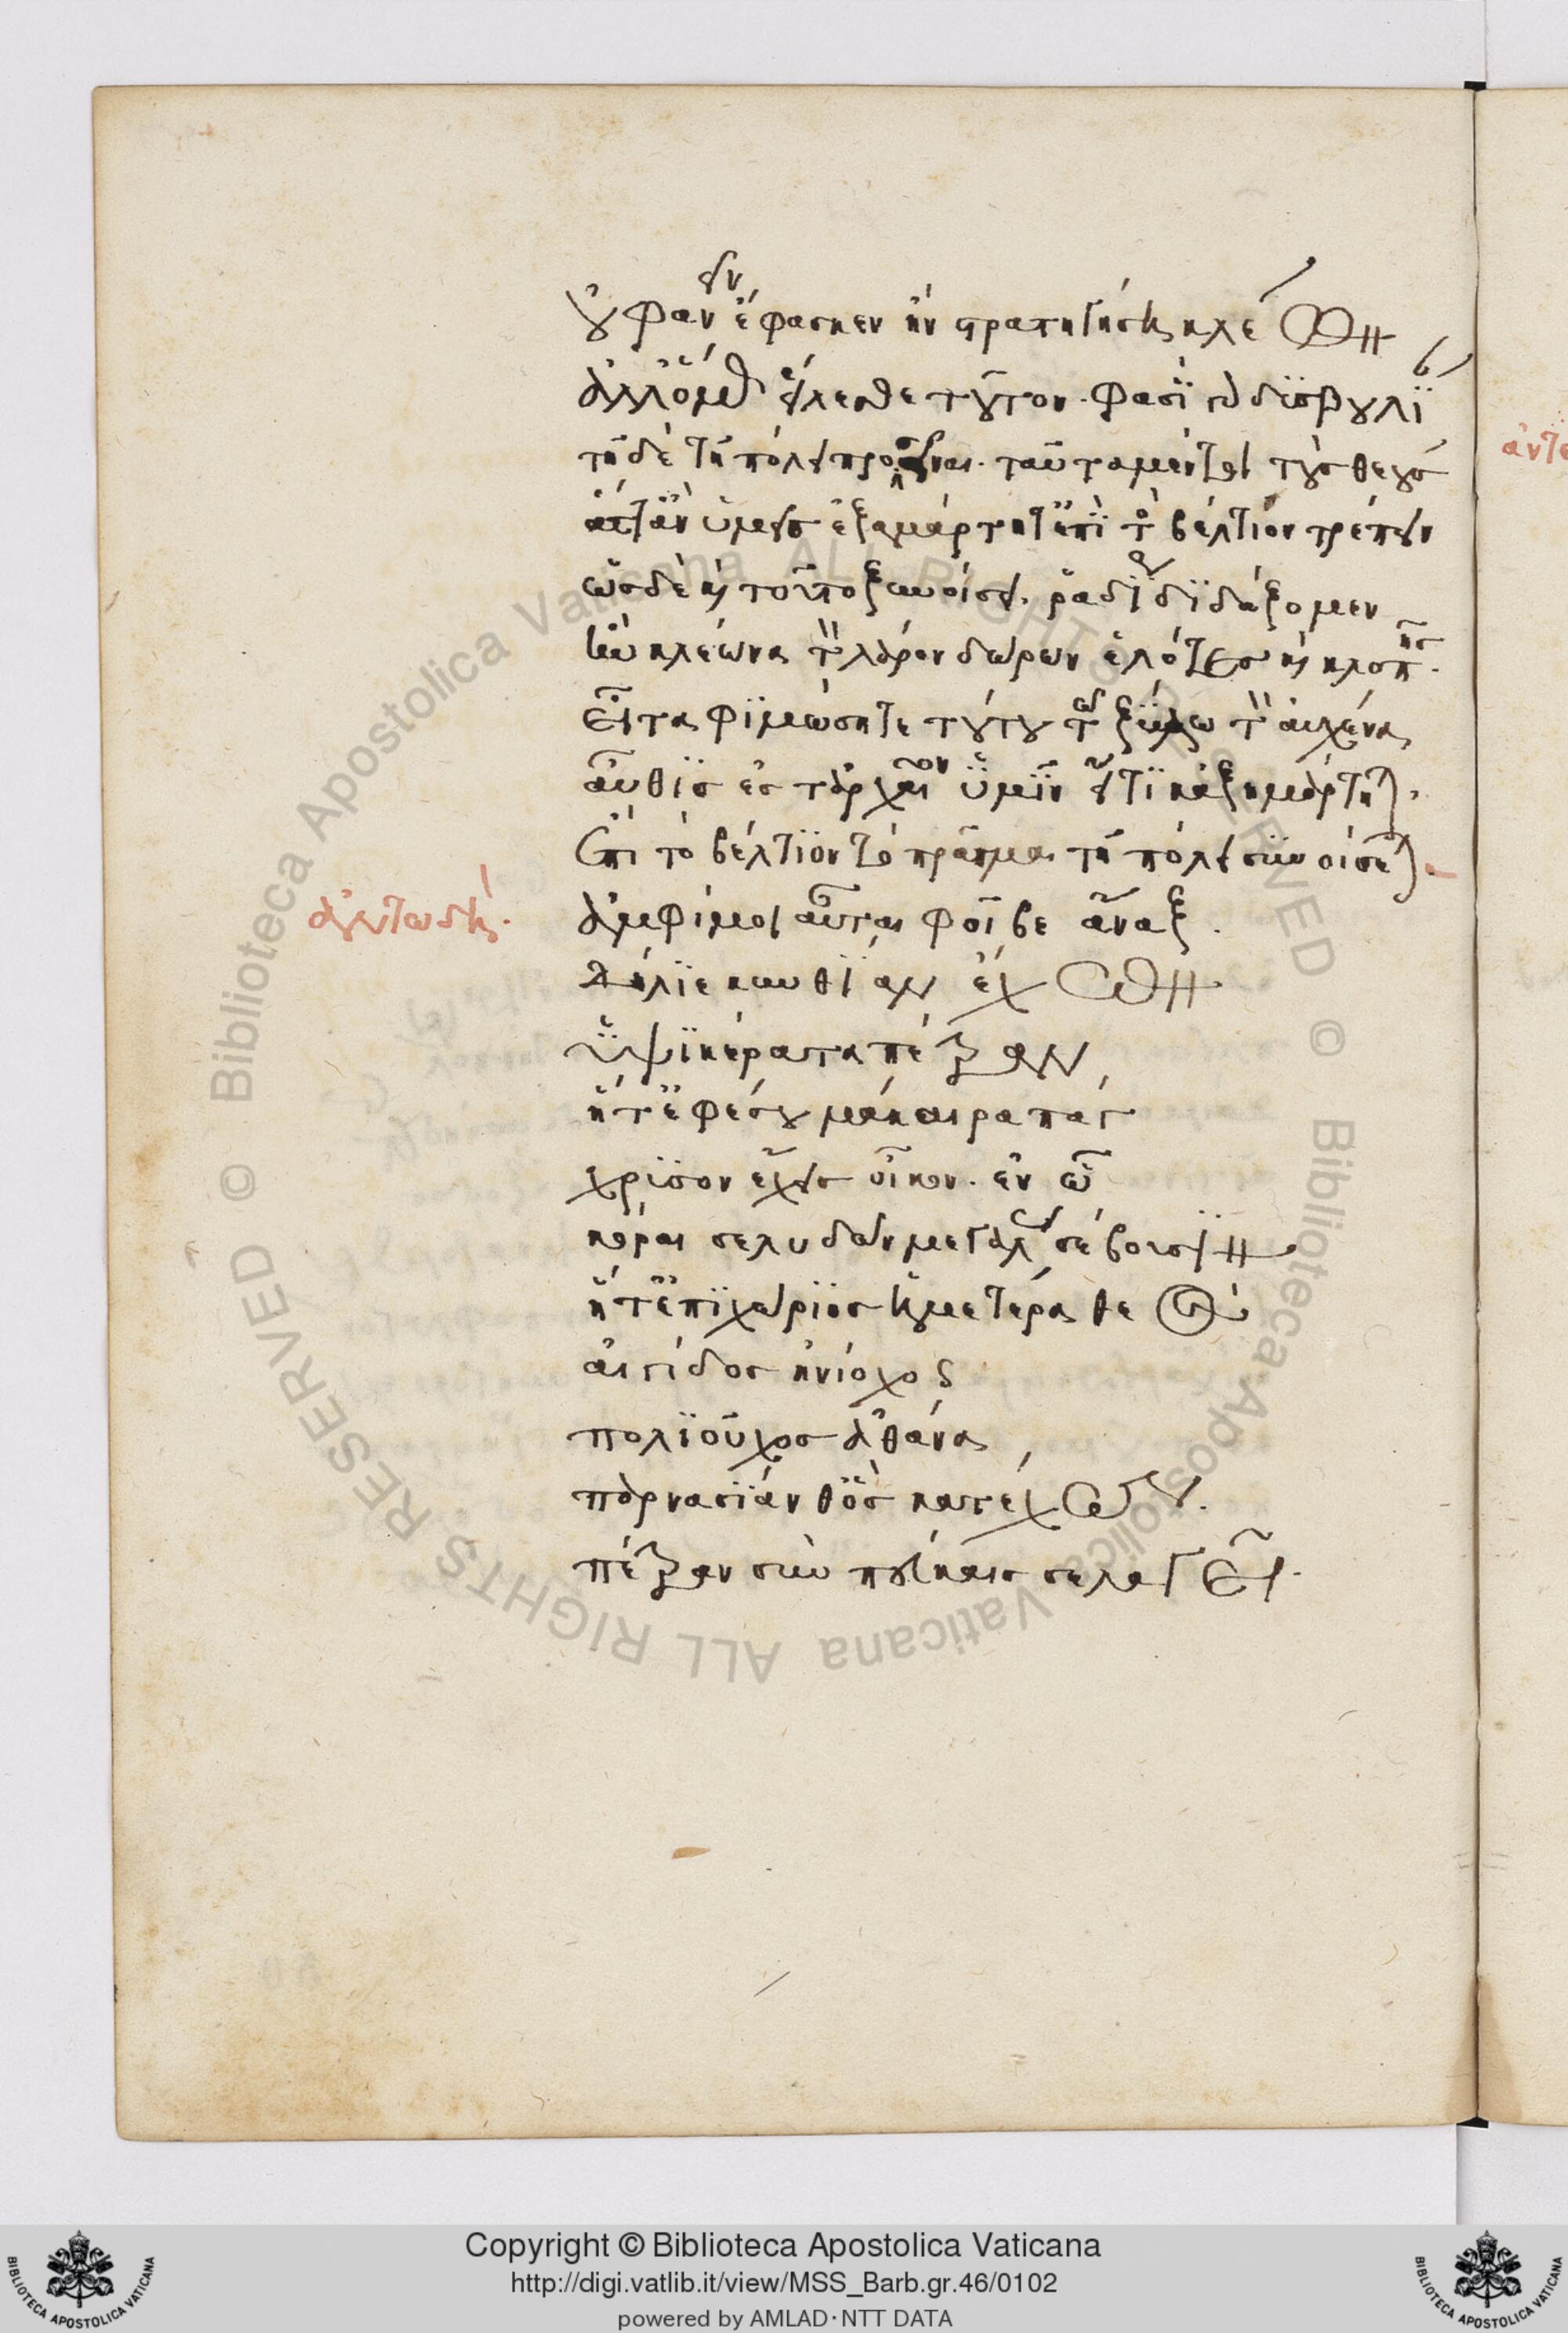 οὐ φανεῖν ἔφασκεν ἢν στρατηγήσῃ κλέων
ἀλλ' ὅμως εἵλεσθε τοῦτον. φασὶ γὰρ δυσβουλίαν
τῇδε τῇ πόλει προσεῖναι. ταῦτα μέντοι τοὺς θεοὺς
ἅττ' ἂν ὑμεῖς ἐξαμάρτητ' ἐπὶ τὸ βέλτιον τρέπειν
ὡς δὲ καὶ τοῦτο ξυνοίσει. ῥαδίως διδάξομεν
ἢν κλέωνα τὸν λάρον δώρων ἑλόντες καὶ κλοπῆς.
εἶτα φιμώσητε τούτου τῷ ξύλῳ τὸν αὐχένα
αὖθις ἐς τἀρχαῖον ὑμῖν εἴ τι κἀξημάρτηται.
ἐπὶ τὸ βέλτιον τὸ πρᾶγμα τῇ πόλει συνοίσεται.
ἀντωδή.
ἀμφί μοι αὖτε φοῖβε ἄναξ.
δήλιε κυνθίαν ἔχων
ὑψικέρατα πέτραν
ἥ τ' ἐφέσου μάκαιρα πάγ
χρυσον ἔχεις οἶκον. ἐν ᾧ
κόραι σε λυδῶν μεγάλως σέβουσιν
ἥ τ' ἐπιχώριος ἡμετέρα θεὸς
αἰγίδος ἡνίοχος
πολιοῦχος ἀθάνα
παρνασίαν θ' ὃς κατέχων.
πέτραν σὺν πεύκαις σελαγεῖ.
Copyright © Biblioteca Apostolica Vaticana
http://digi.vatlib.it/view/MSS_Barb.gr.46/0102
powered by AMLAD·NTT DATA